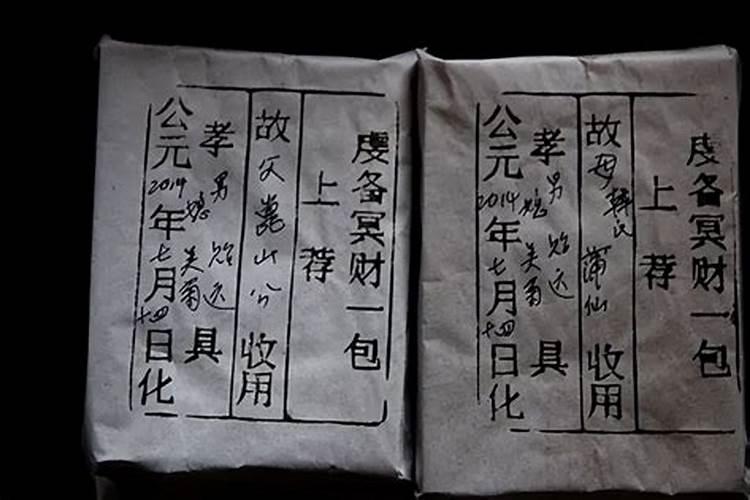 虔备冥财一包
上荐
故父嵩山公收用
孝男贻远具
媳美菊
公元2014年七月十四日化
虔备冥财一包
上荐
故母韩氏蒲仙收用
孝男贻远具
媳美菊
公元2014年七月十四日化